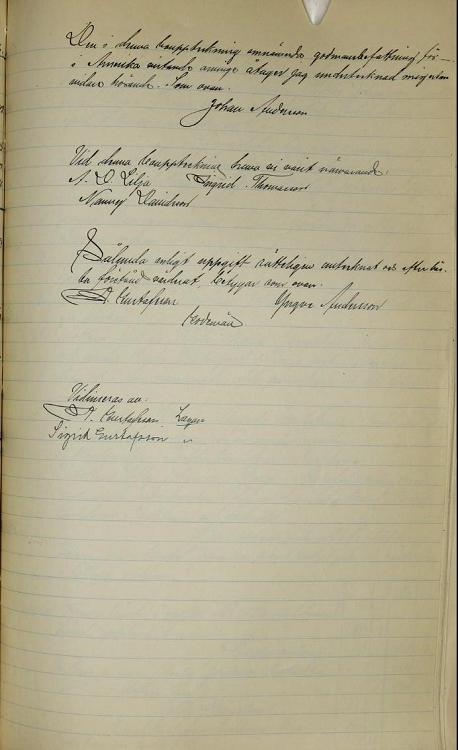 Den i denna bouppteckning omnämnda godmansbefattning för
i Amerika vistande arvinge åtager jag undertecknad mig
som ovan.
Johan Andersson
Vid denna bouppteckning hava vi varit närvarande:
A. D. Lilja Ingrid Thomasson
Nanny Davidsson
Sålunda enligt uppgift rätteligen antecknat och efter bäs-
ta förstånd värderat, betygar som ovan.
A. Gustafsson Yngve Andersson
Godemän
Vidimeras av:
A. Gustafsson Lagan
Sigrid Gustafsson "